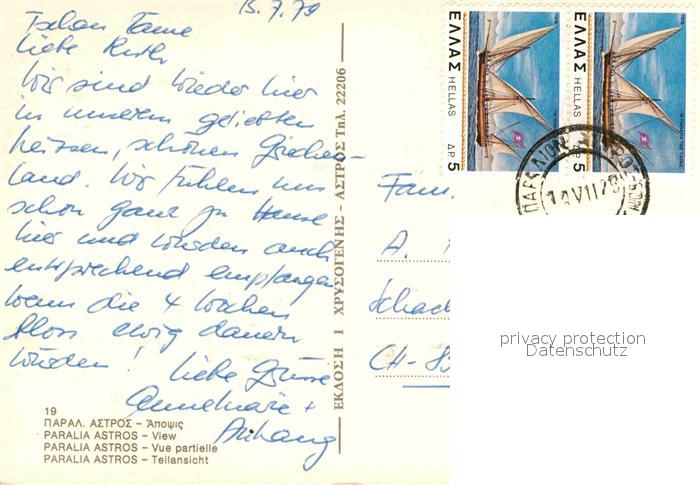 13.7.79
Liebe Ruth
Wir sind wieder hier
in unserem geliebten
heissen, schönen Griechen-
land. Wir fühlen uns
schon ganz zu Hause
hier und wurden auch
entsprechend empfangen
wenn die 4 Wochen
bloss ewig dauern
würden! Liebe Grüsse
Annemarie +
Anhang
19
ΠΑΡΑΛ. ΑΣΤΡΟΣ – Ἄποψις
PARALIA ASTROS – View
PARALIA ASTROS – Vue partielle
PARALIA ASTROS – Teilansicht
ΕΚΔΟΣΗ Ι ΧΡΥΣΟΓΕΝΗΣ – ΑΣΤΡΟΣ Τηλ. 22206
ΕΛΛΑΣ HELLAS ΔΡ 5
ΕΛΛΑΣ HELLAS ΔΡ 5
14 VII 79
Fam.
A.
Schach
CH-85
privacy protection
Datenschutz